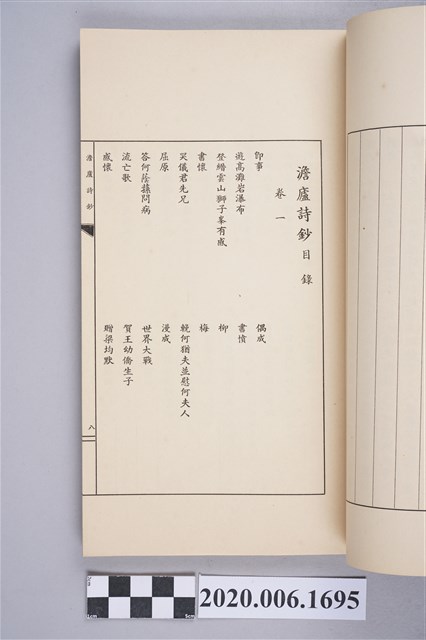 澹廬詩鈔目錄
卷一
即事
偶成
遊高灘岩瀑布
書憤
登縉雲山獅子峯有感
柳
書懷
梅
哭儀君先兄
輓何猶夫並慰何夫人
屈原
漫成
答何蔭蓀問病
世界大戰
流亡歌
賀王幼僑生子
感懷
贈梁均默
澹廬詩鈔
八
2020.006.1695